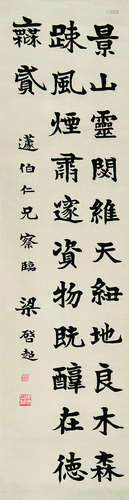 景山靈閟維天紐地良木森
踈風煙肅邃資物既醇在德
貳
伯仁兄察臨 梁啓超